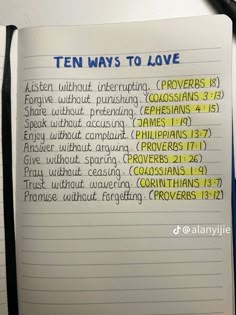 TEN WAYS TO LOVE
Listen without interrupting. (PROVERBS 18)
Forgive without punishing. (COLOSSIANS 3:13)
Share without pretending. (EPHESIANS 4:15)
Speak without accusing. (JAMES 1:19)
Enjoy without complaint. (PHILIPPIANS 13:7)
Answer without arguing. (PROVERBS 17:1)
Give without sparing. (PROVERBS 21:26)
Pray without ceasing. (COLOSSIANS 1:9)
Trust without wavering. (CORINTHIANS 13:7)
Promise without Forgetting. (PROVERBS 13:12)
@alanyijie